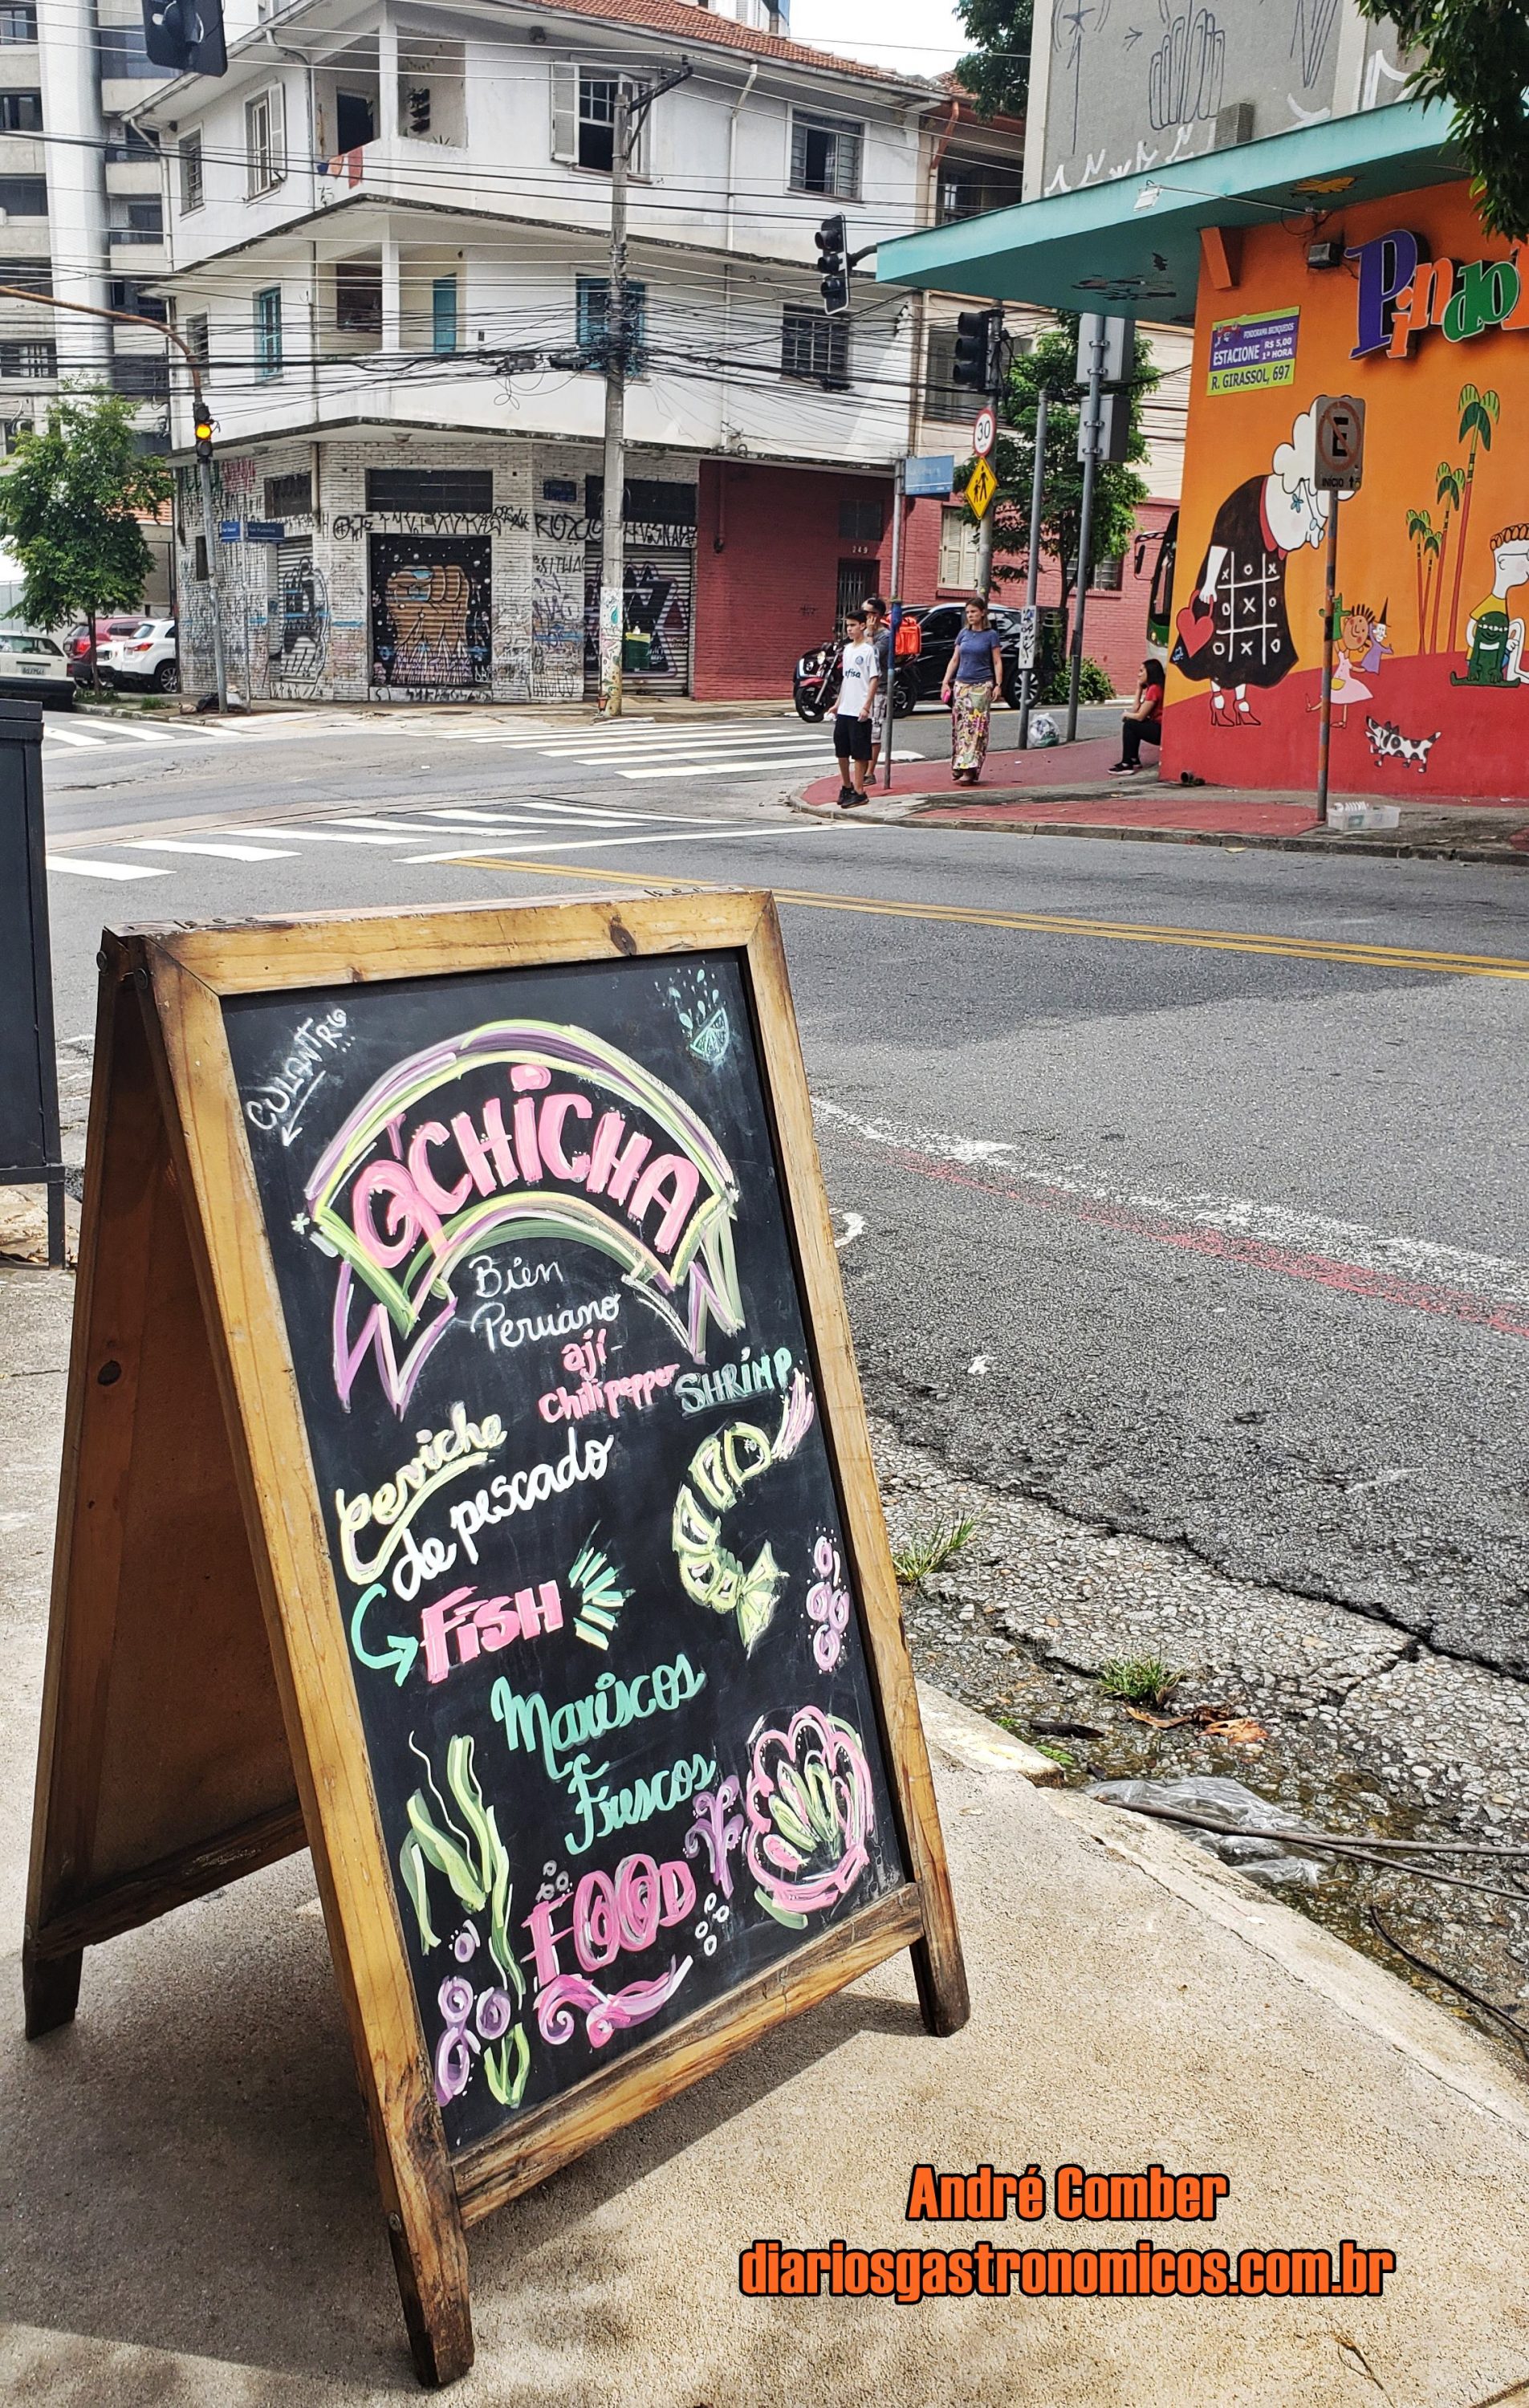 Pindo
PINDORAMA BRINQUEDOS
ESTACIONE R$ 5,00
1ª HORA
R. GIRASSOL, 697
30
E
INÍCIO
249
CULANTRO...
Q'CHICHA
Bien
Peruano
ají
chili pepper
SHRIMP
Ceviche
de pescado
FISH
Mariscos
Frescos
FOOD
André Comber
diariosgastronomicos.com.br